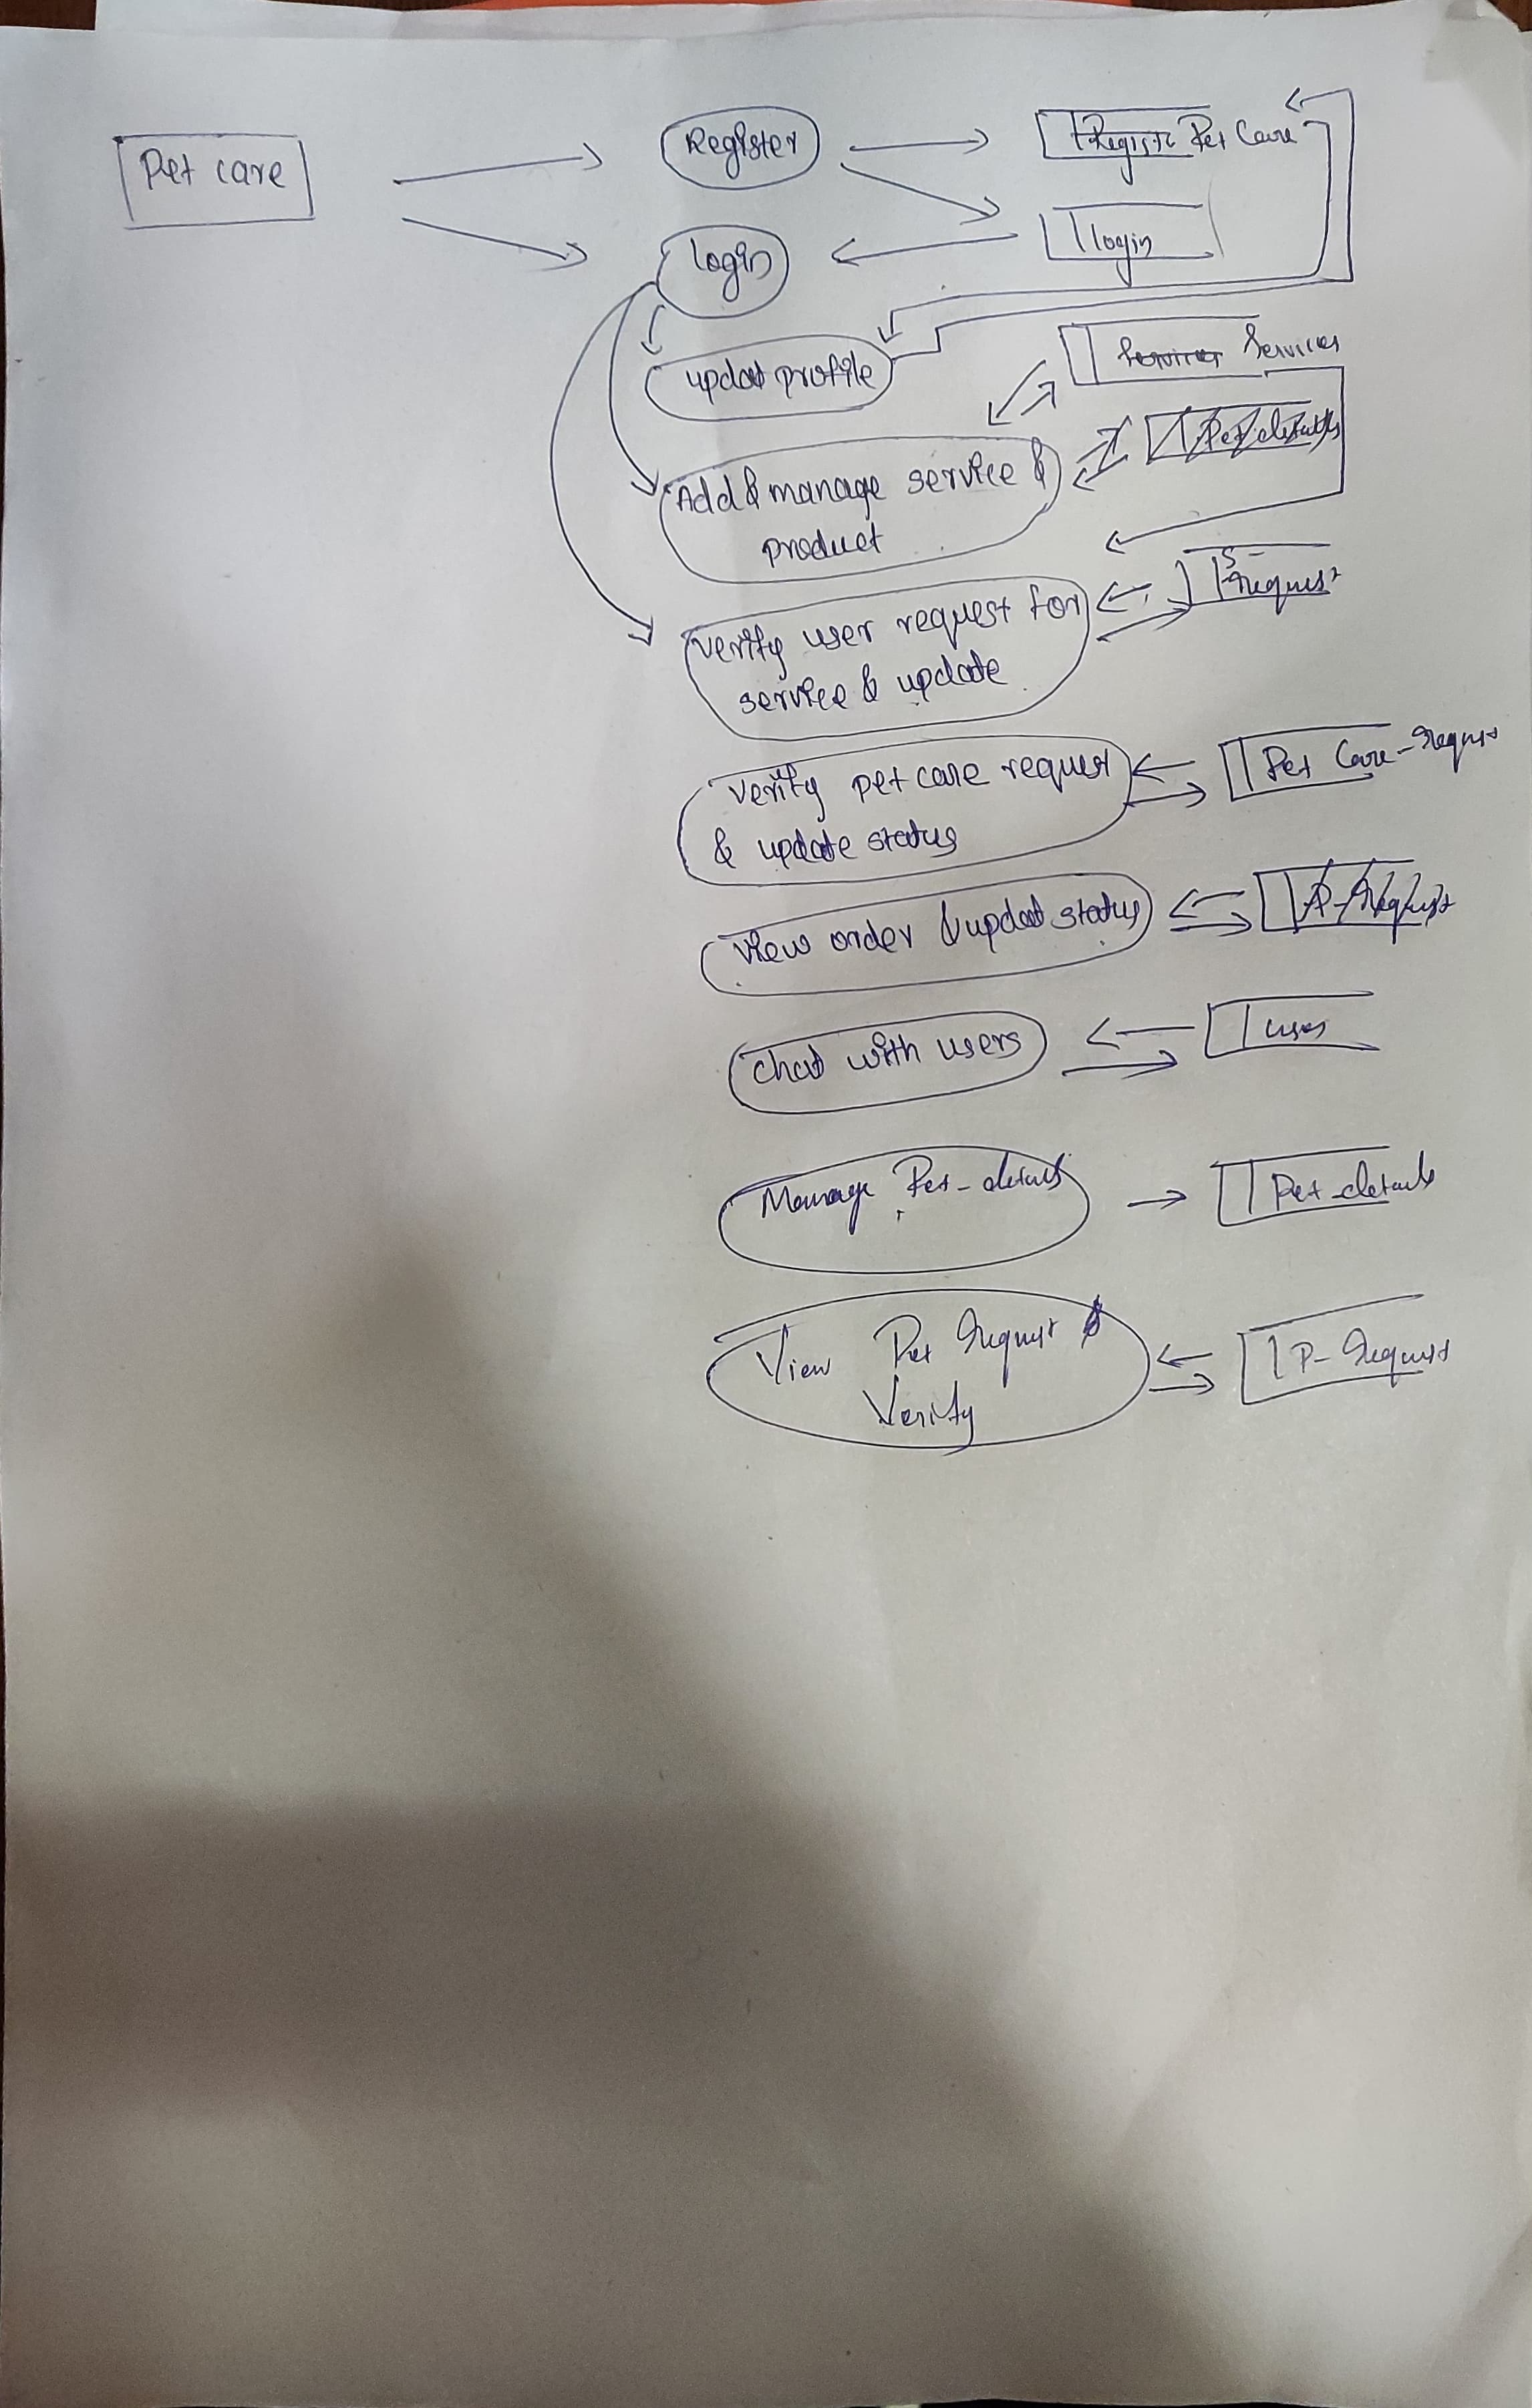 Pet care
Register
Pet Care
login
login
updat profile
Services
Add & manage service &
product
Pet-details
verify user request for
service & update
S-
request
verify pet care request
& update status
Pet Care-request
view order & updat status
P-Request
chat with users
user
Manage Pet-details
Pet-details
View Pet Request &
Verify
P-Request